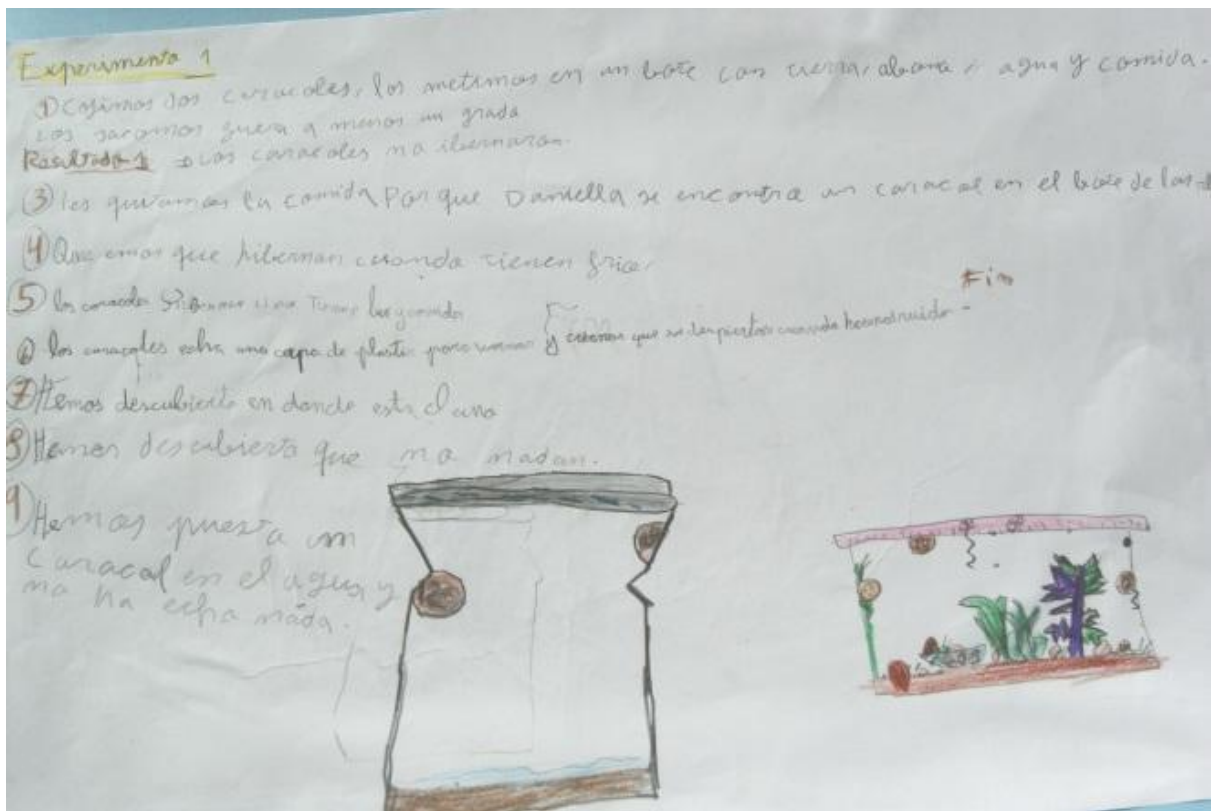 Experimento 1
① Cojimos dos caracoles, los metimos en un bote con tierra, abono, agua y comida.
Los sacamos fuera a menos un grado
Resultado 1 los caracoles no ibernaron.
③ les quitamos la comida Porque Daniella se encontro un caracol en el bote de las
④ que hibernan cuando tienen frio.
⑤ los caracoles si no tienen
⑥ los caracoles echa una capa de plastico para y creemos que se despiertan cuando hacemos ruido - Fin
⑦ Hemos descubierto en donde esta el ano
8) Hemos descubierto que no nadan.
9) Hemos puesto un
caracol en el agua y
no ha echo nada.